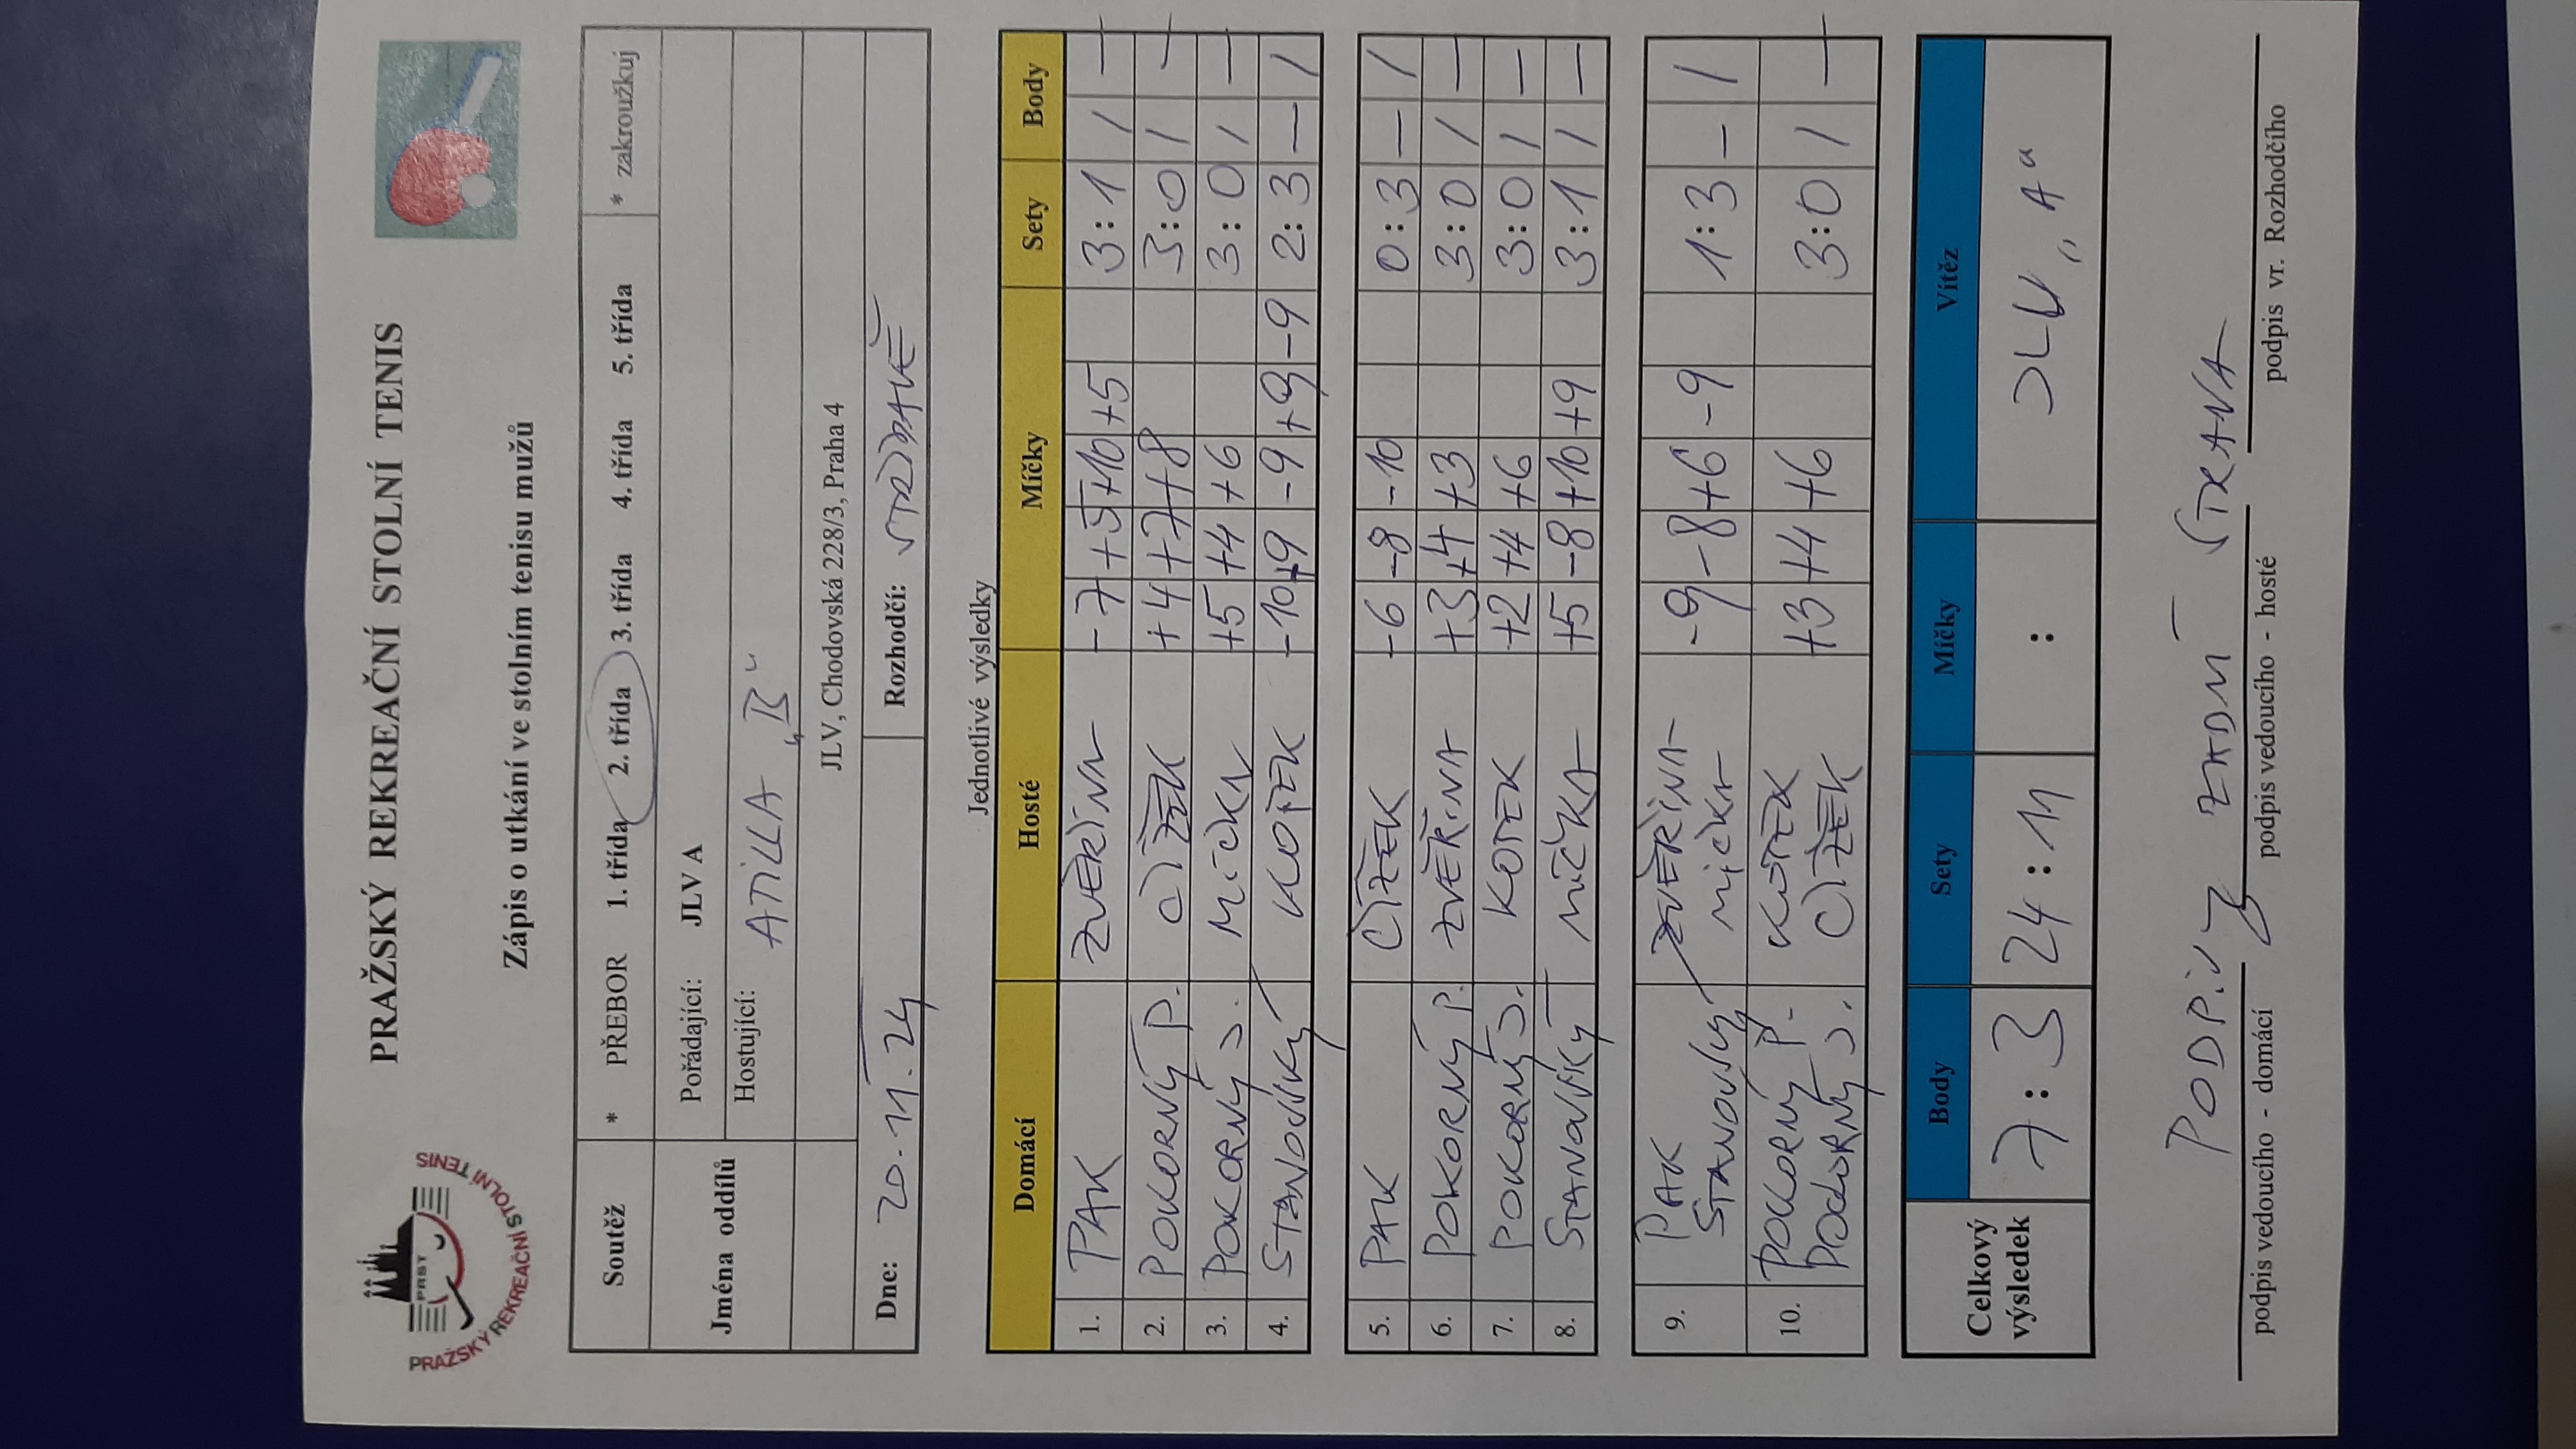 PRAŽSKÝ REKREAČNÍ STOLNÍ TENIS
PRST
PRAŽSKÝ REKREAČNÍ STOLNÍ TENIS
Zápis o utkání ve stolním tenisu mužů
Soutěž * PŘEBOR 1. třída 2. třída 3. třída 4. třída 5. třída * zakroužkuj
Jména oddílů
Pořádající: JLV A
Hostující: ATILLA „B"
JLV, Chodovská 228/3, Praha 4
Dne: 20.11.24 Rozhodčí: STŘÍDAVĚ
Jednotlivé výsledky
Domácí Hosté Míčky Sety Body
1. PAK ZVĚŘINA -7 +9 +10 +5 3:1 / —
2. POKORNÝ P. ČÍŽEK +4 +7 +8 3:0 / —
3. POKORNÝ J. MIČKA +5 +4 +6 3:0 / —
4. STANOVSKÝ KOTEK -10 +9 -9 +9 -9 2:3 — /
5. PAK ČÍŽEK -6 -8 -10 0:3 — /
6. POKORNÝ P. ZVĚŘINA +3 +4 +3 3:0 / —
7. POKORNÝ J. KOTEK +2 +4 +6 3:0 / —
8. STANOVSKÝ MIČKA +5 -8 +10 +9 3:1 / —
9. PAK ZVĚŘINA -9 -8 +6 -9 1:3 — /
STANOVSKÝ MIČKA
10. POKORNÝ P. KOTEK +3 +4 +6 3:0 / —
POKORNÝ J. ČÍŽEK
Celkový výsledek
Body Sety Míčky Vítěz
7:3 24:11 : JLV „A"
PODPISY ZADNÍ STRANA
podpis vedoucího - domácí podpis vedoucího - hosté podpis vr. Rozhodčího